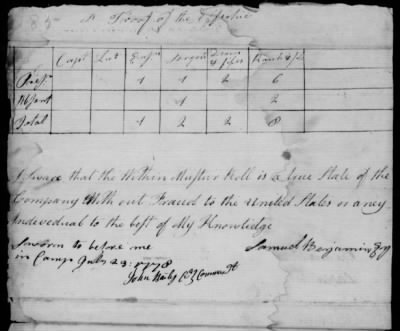 A Proof of the Effective
Capt Lut Ens^n Sergen^t Drum & fifes Rank & file
Present 1 1 2 6
Absent 1 2
Total 1 2 2 8
I Sware that the Within Muster Roll is a true State of the
Company With out Fraud to the United States or aney
Indevedual to the best of My Knowlidge
Sworn to before me
Samuel Benjamin
in Camp July 23: 1778
John Bailey Col Commandt